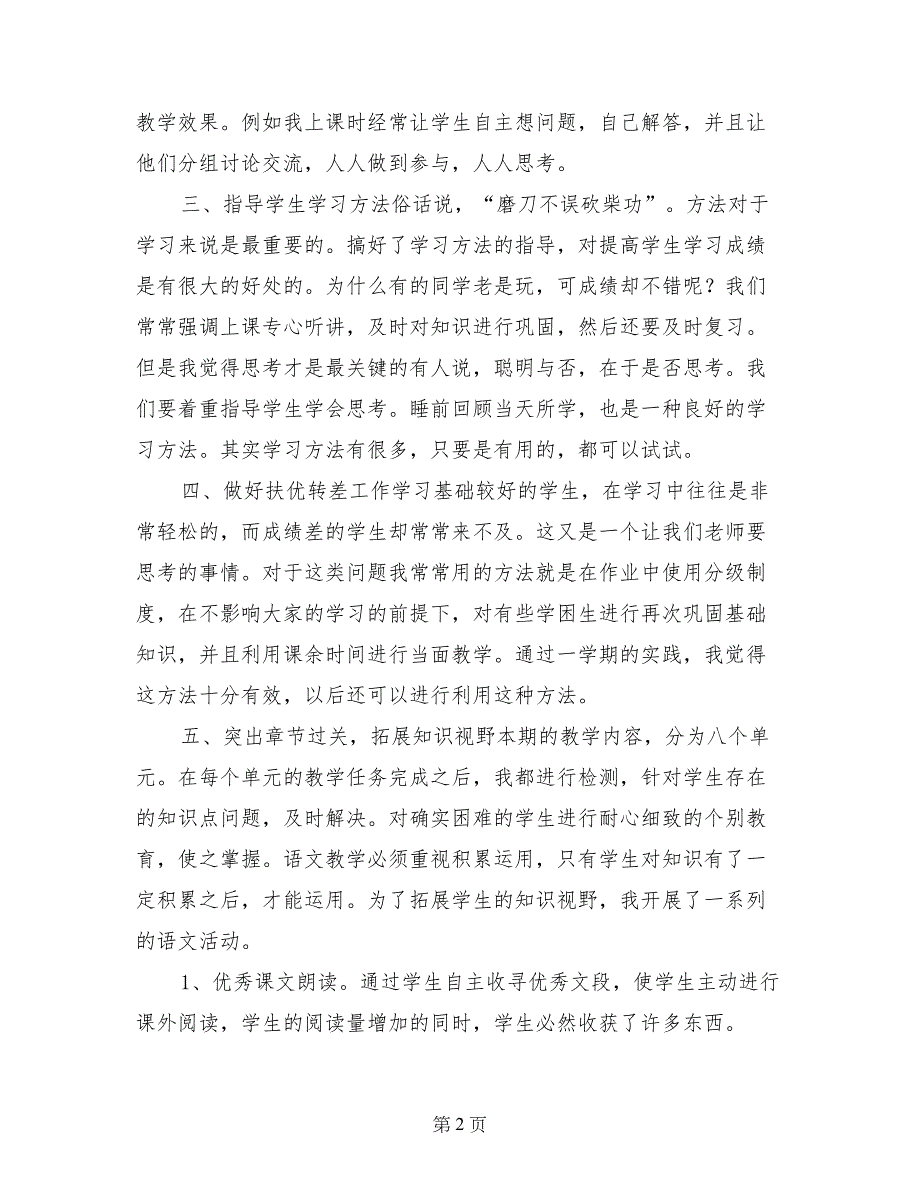 教学效果。例如我上课时经常让学生自主想问题，自己解答，并且让
他们分组讨论交流，人人做到参与，人人思考。
三、指导学生学习方法俗话说，“磨刀不误砍柴功”。方法对于
学习来说是最重要的。搞好了学习方法的指导，对提高学生学习成绩
是有很大的好处的。为什么有的同学老是玩，可成绩却不错呢？我们
常常强调上课专心听讲，及时对知识进行巩固，然后还要及时复习。
但是我觉得思考才是最关键的有人说，聪明与否，在于是否思考。我
们要着重指导学生学会思考。睡前回顾当天所学，也是一种良好的学
习方法。其实学习方法有很多，只要是有用的，都可以试试。
四、做好扶优转差工作学习基础较好的学生，在学习中往往是非
常轻松的，而成绩差的学生却常常来不及。这又是一个让我们老师要
思考的事情。对于这类问题我常常用的方法就是在作业中使用分级制
度，在不影响大家的学习的前提下，对有些学困生进行再次巩固基础
知识，并且利用课余时间进行当面教学。通过一学期的实践，我觉得
这方法十分有效，以后还可以进行利用这种方法。
五、突出章节过关，拓展知识视野本期的教学内容，分为八个单
元。在每个单元的教学任务完成之后，我都进行检测，针对学生存在
的知识点问题，及时解决。对确实困难的学生进行耐心细致的个别教
育，使之掌握。语文教学必须重视积累运用，只有学生对知识有了一
定积累之后，才能运用。为了拓展学生的知识视野，我开展了一系列
的语文活动。
1、优秀课文朗读。通过学生自主收寻优秀文段，使学生主动进行
课外阅读，学生的阅读量增加的同时，学生必然收获了许多东西。
第 2 页